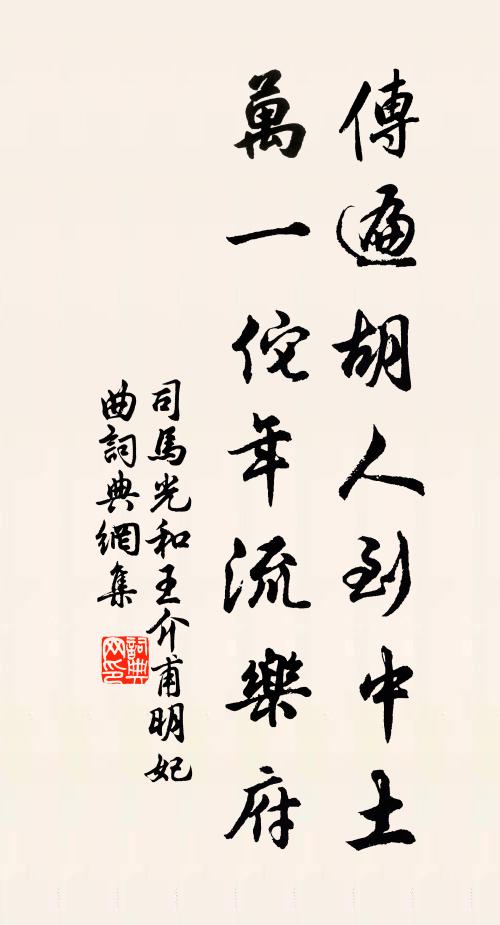 傳遍胡人到中土
萬一佗年流樂府
司馬光和王介甫明妃
曲詞典網集
詞典網印